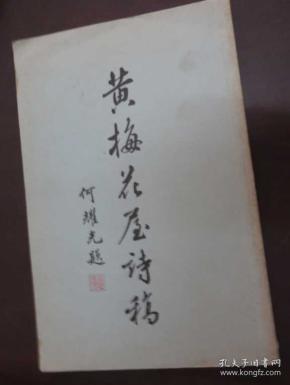 黄梅花屋詩稿
何耀光題
孔夫子旧书网
kongfz.com